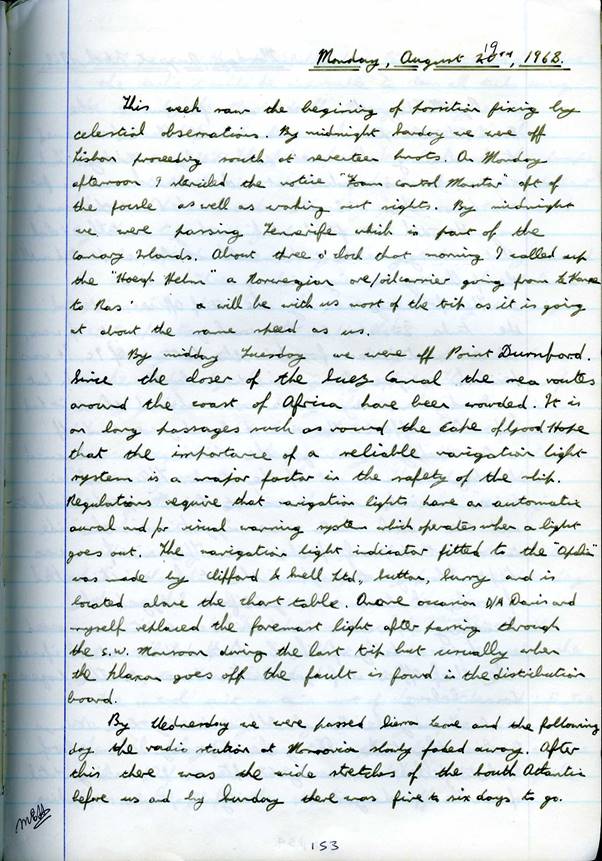 Monday, August 19th, 1968.
This week saw the begining of position fixing by
celestial observations. By midnight Sunday we were off
Lisbon proceeding south at seventeen knots. On Monday
afternoon I stenciled the notice "Foam control Monitor" aft of
the focsle as well as working out sights. By midnight
we were passing Tenerife which is part of the
Canary Islands. About three o'clock that morning I called up
the "Hoegh Helm" a Norwegian ore/oil carrier going from Le Havre
to Ras' a will be with us most of the trip as it is going
at about the same speed as us.
By midday Tuesday we were off Point Durnford.
Since the closer of the Suez Canal the sea routes
around the coast of Africa have been crowded. It is
on long passages such as round the Cape of Good Hope
that the importance of a reliable navigation light
system is a major factor in the safety of the ship.
Regulations require that navigation lights have an automatic
aural and/or visual warning system which operates when a light
goes out. The navigation light indicator fitted to the
was made by Clifford & Snell Ltd., Sutton, Surrey and is
located above the chart table. On one occasion D/A Davis and
myself replaced the foremast light after passing through
the S.W. Monsoon during the last trip but usually when
the klaxon goes off the fault is found in the distribution
board.
By Wednesday we were passed Sierra Leone and the following
day the radio station at Monrovia slowly faded away. After
this there was the wide stretches of the South Atlantic
before us and by Sunday there was five to six days to go.
153